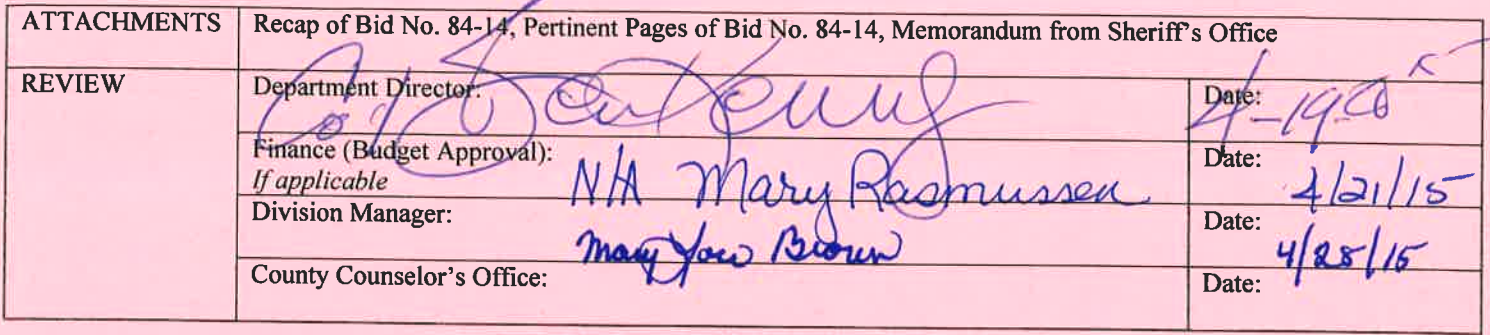 ATTACHMENTS Recap of Bid No. 84-14, Pertinent Pages of Bid No. 84-14, Memorandum from Sheriff's Office
REVIEW Department Director: Date:
Finance (Budget Approval): Date:
If applicable N/A Mary Rasmussen 4/21/15
Division Manager: Date:
Mary Brown 4/28/15
County Counselor's Office: Date: